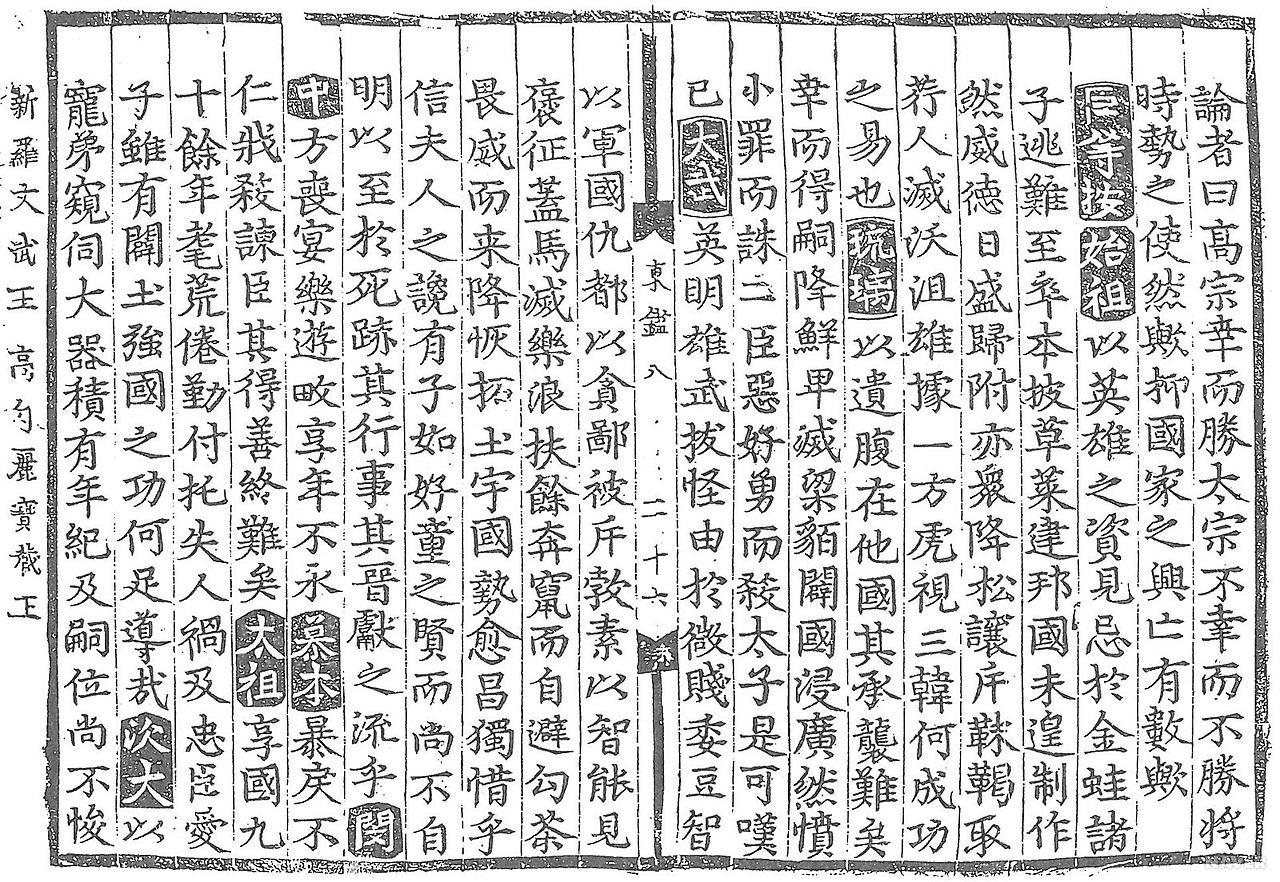 論者曰高宗幸而勝太宗不幸而不勝將
時勢之使然歟抑國家之興亡有數歟
臣等按始祖以英雄之資見忌於金蛙諸
子逃難至卒本披草萊建邦國未遑制作
然威德日盛歸附亦衆降松讓斥靺鞨取
荇人滅沃沮雄據一方虎視三韓何成功
之易也琉璃以遺腹在他國其承襲難矣
幸而得嗣降鮮卑滅梁貊闢國浸廣然憤
小罪而誅二臣惡好勇而殺太子是可嘆
已大武英明雄武拔怪由於微賤委豆智
東鑑八 二十六
以軍國仇都以貪鄙被斥敦素以智能見
褒征蓋馬滅樂浪扶餘奔竄而自避勾荼
畏威而来降恢拓土宇國勢愈昌獨惜乎
信夫人之讒有子如好童之賢而尚不自
明以至於死跡其行事其晋獻之流乎閔
中方喪宴樂遊畋享年不永慕本暴戾不
仁戕殺諫臣其得善終難矣太祖享國九
十餘年耄荒倦勤付托失人禍及忠臣愛
子雖有闢土強國之功何足導哉次大以
寵弟窺伺大器積有年紀及嗣位尚不悛
新羅文武王 高句麗寶藏王